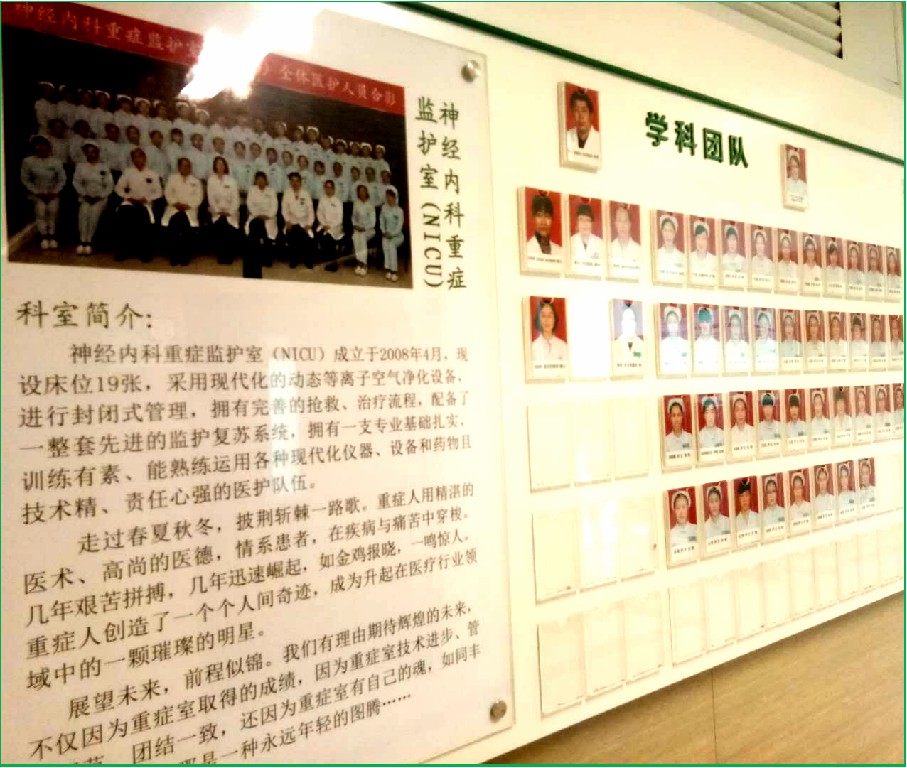 神经内科重症监护室
全体医护人员合影
神经内科重症
监护室(NICU)
学科团队
科室简介:
神经内科重症监护室(NICU)成立于2008年4月,现
设床位19张,采用现代化的动态等离子空气净化设备,
进行封闭式管理,拥有完善的抢救、治疗流程,配备了
一整套先进的监护复苏系统,拥有一支专业基础扎实、
训练有素、能熟练运用各种现代化仪器、设备和药物且
技术精、责任心强的医护队伍。
走过春夏秋冬,披荆斩棘一路歌。重症人用精湛的
医术、高尚的医德,情系患者,在疾病与痛苦中穿梭。
几年艰苦拼搏,几年迅速崛起,如金鸡报晓,一鸣惊人。
重症人创造了一个个人间奇迹,成为升起在医疗行业领
域中的一颗璀璨的明星。
展望未来,前程似锦。我们有理由期待辉煌的未来,
不仅因为重症室取得的成绩,因为重症室技术进步、管
团结一致,还因为重症室有自己的魂,如同丰
是一种永远年轻的图腾……